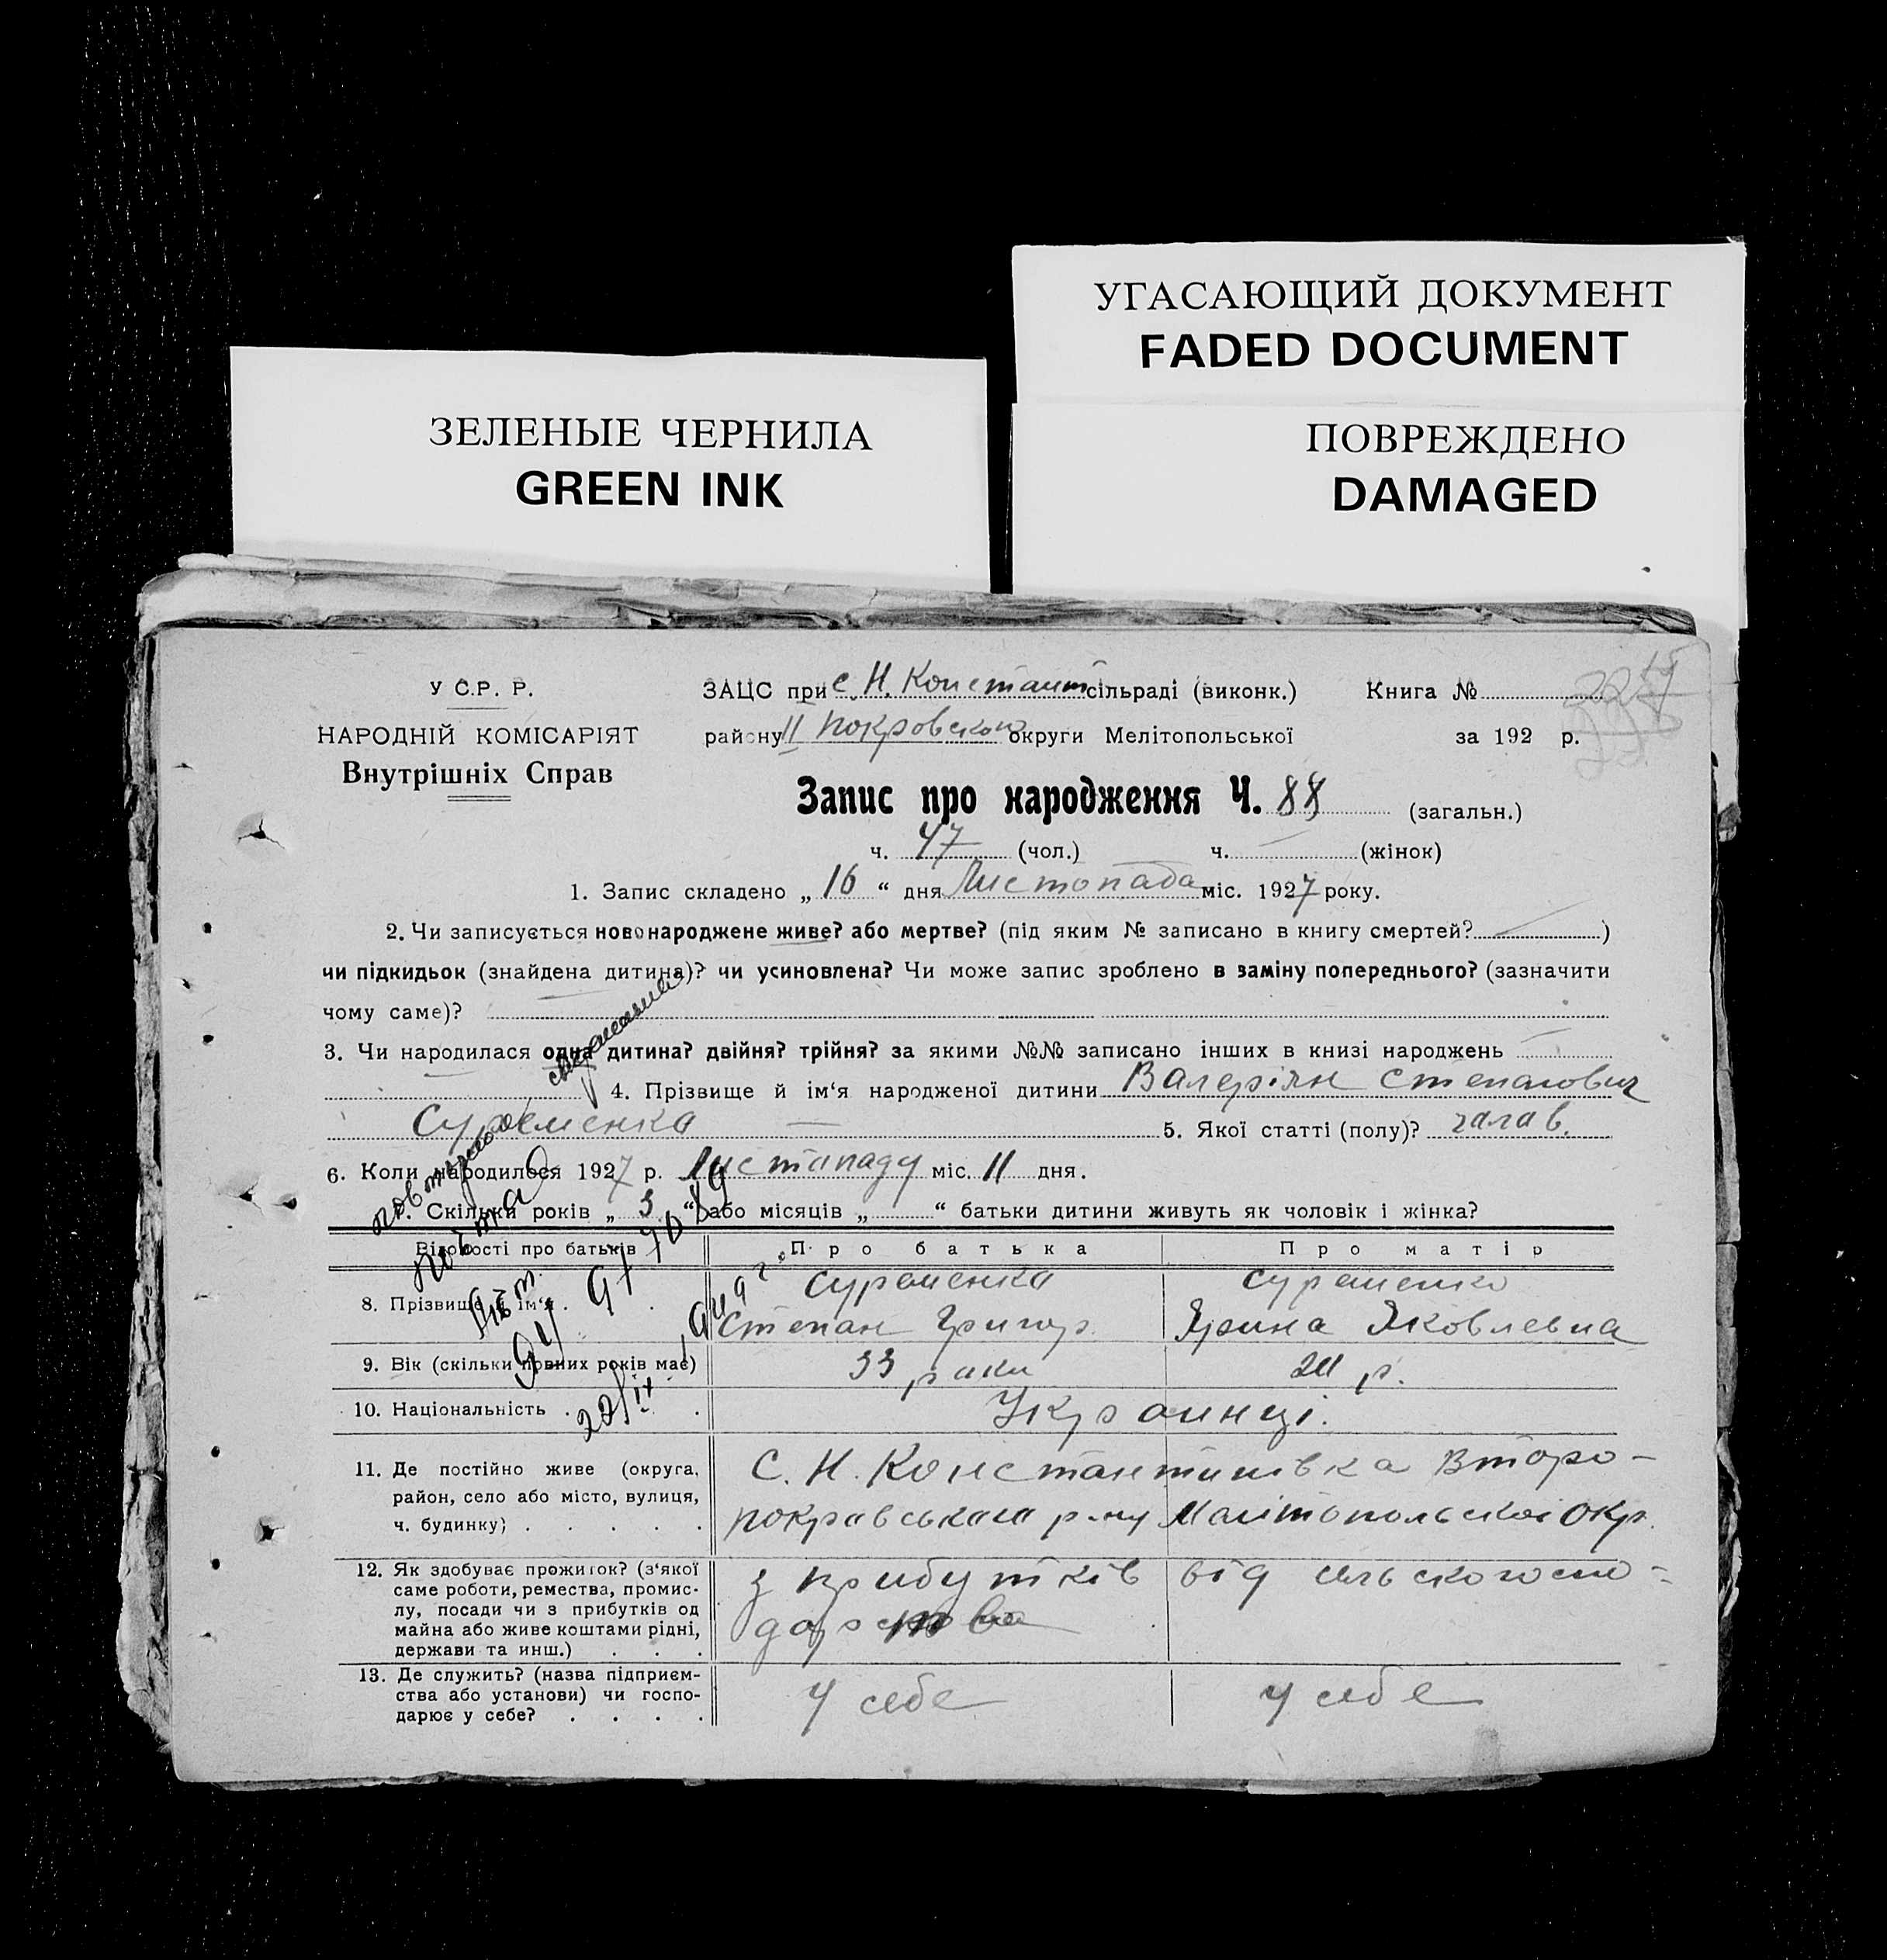 УГАСАЮЩИЙ ДОКУМЕНТ
FADED DOCUMENT
ЗЕЛЕНЫЕ ЧЕРНИЛА
GREEN INK
ПОВРЕЖДЕНО
DAMAGED
У С.Р. Р.
НАРОДНІЙ КОМІСАРІЯТ
Внутрішніх Справ
ЗАЦС при с Н. Константсільраді (виконк.) Книга №
району II Покровского округи Мелітопольської за 192 р.
Запис про народження Ч. 88 (загальн.)
ч. 47 (чол.) ч. (жінок)
1. Запис складено „ 16 “ дня Листопада міс. 1927 року.
2. Чи записується новонароджене живе? або мертве? (під яким № записано в книгу смертей? )
чи підкидьок (знайдена дитина)? чи усиновлена? Чи може запис зроблено в заміну попереднього? (зазначити
чому саме)?
3. Чи народилася одна дитина? двійня? трійня? за якими №№ записано інших в книзі народжень
4. Прізвище й ім‘я народженої дитини Валеріян Степанович
5. Якої статті (полу)? чалав.
6. Коли народилося 1927 р. Листападу міс. 11 дня.
7. Скільки років „ 3 “ або місяців „ “ батьки дитини живуть як чоловік і жінка?
Відомості про батьків Про батька Про матір
8. Прізвище й ім‘я
Степан Григор. Ярина Яковлевна
9. Вік (скільки повних років має) 33 раки р.
10. Національність Украинці.
11. Де постійно живе (округа, район, село або місто, вулиця, ч. будинку)
С. Н. Константинівка Второ-
покравськага р-ну Мелітопольскої Окр.
12. Як здобуває прожиток? (з‘якої саме роботи, ремества, промислу, посади чи з прибутків од майна або живе коштами рідні, держави та инш.)
з прибутків від сельскогоспо-
дарства
13. Де служить? (назва підприємства або установи) чи господарює у себе?
У себе У себе